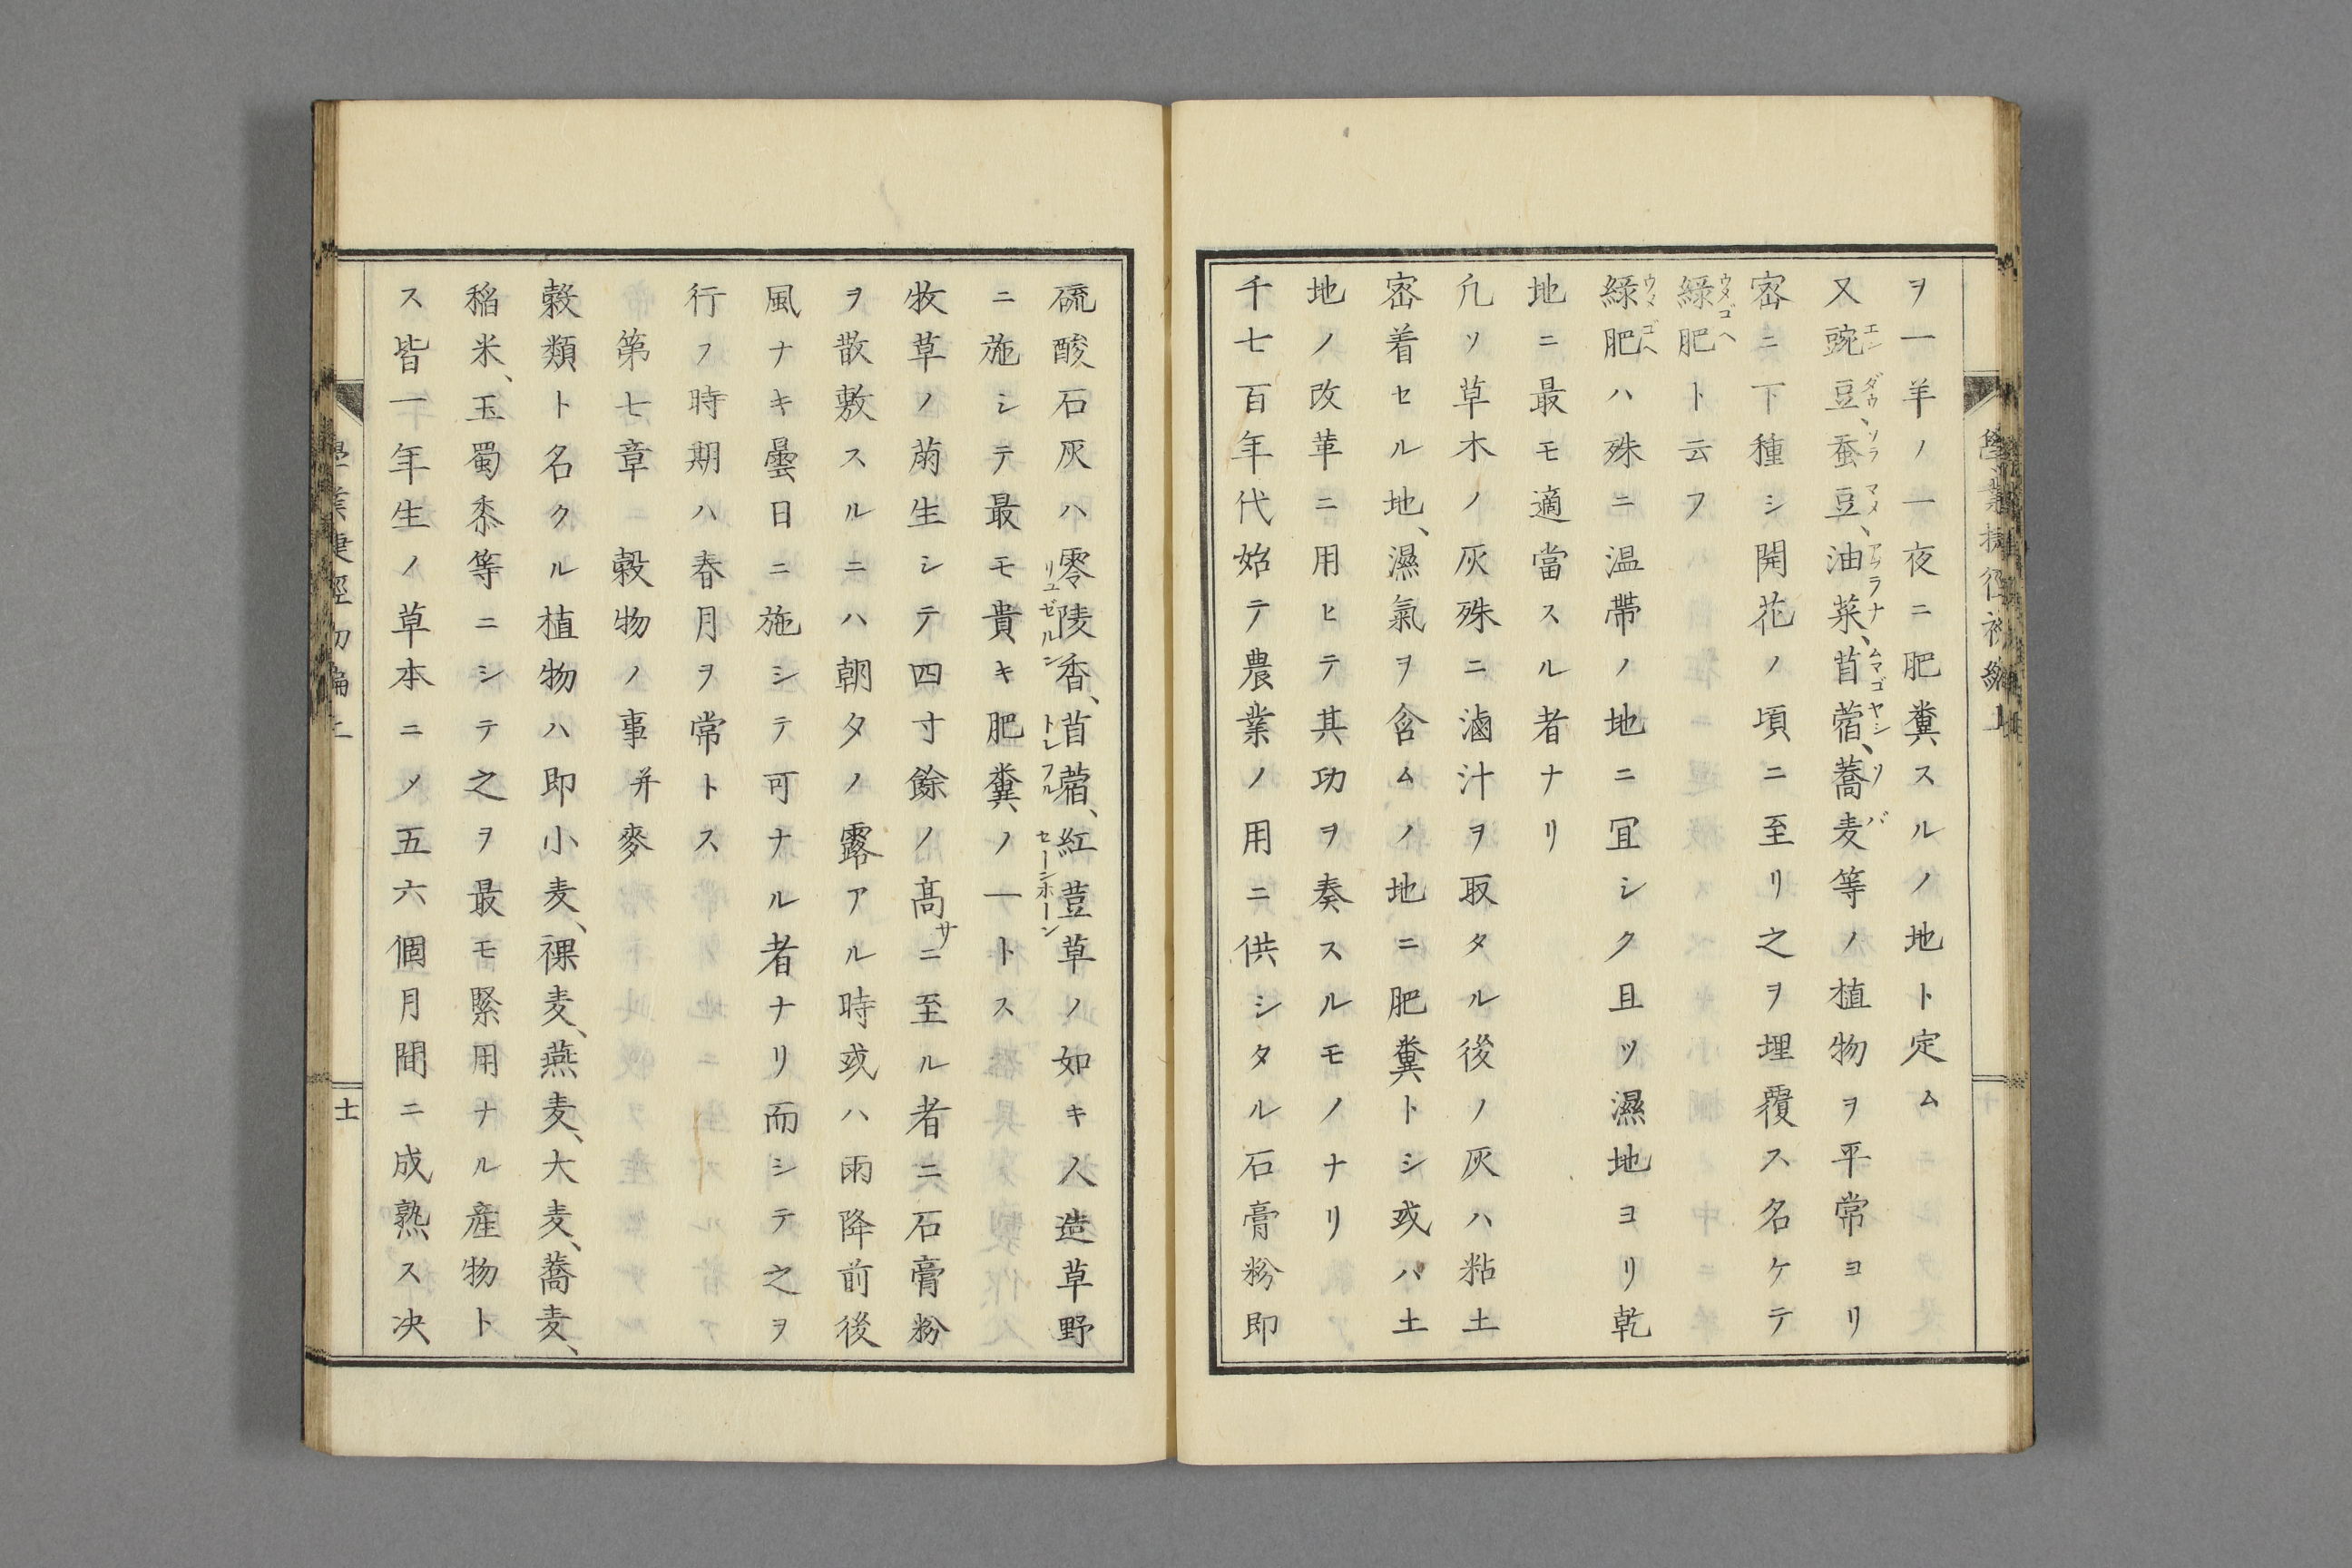 ヲ一羊ノ一夜ニ肥糞スルノ地ト定ム
又豌豆、蚕豆、油菜、苜蓿、蕎麦等ノ植物ヲ平常ヨリ
密ニ下種シ開花ノ頃ニ至リ之ヲ埋覆ス名ケテ
緑肥ト云フ
緑肥ハ殊ニ温帶ノ地ニ冝シク且ツ濕地ヨリ乾
地ニ最モ適當スル者ナリ
凢ソ草木ノ灰殊ニ滷汁ヲ取タル後ノ灰ハ粘土
密着セル地、濕氣ヲ含ムノ地ニ肥糞トシ或ハ土
地ノ改革ニ用ヒテ其功ヲ奏スルモノナリ
千七百年代始テ農業ノ用ニ供シタル石膏粉即
硫酸石灰ハ零陵香、苜蓿、紅荳草ノ如キ人造草野
ニ施シテ最モ貴キ肥糞ノ一トス
牧草ノ萠生シテ四寸餘ノ髙サニ至ル者ニ石膏粉
ヲ散敷スルニハ朝夕ノ露アル時或ハ雨降前後
風ナキ曇日ニ施シテ可ナル者ナリ而シテ之ヲ
行フ時期ハ春月ヲ常トス
第七章 穀物ノ事并麥
穀類ト名クル植物ハ即小麦、裸麦、燕麦、大麦、蕎麦、
稲米、玉蜀黍等ニシテ之ヲ最モ緊用ナル産物ト
ス皆一年生ノ草本ニシテ五六個月間ニ成熟ス决
十一